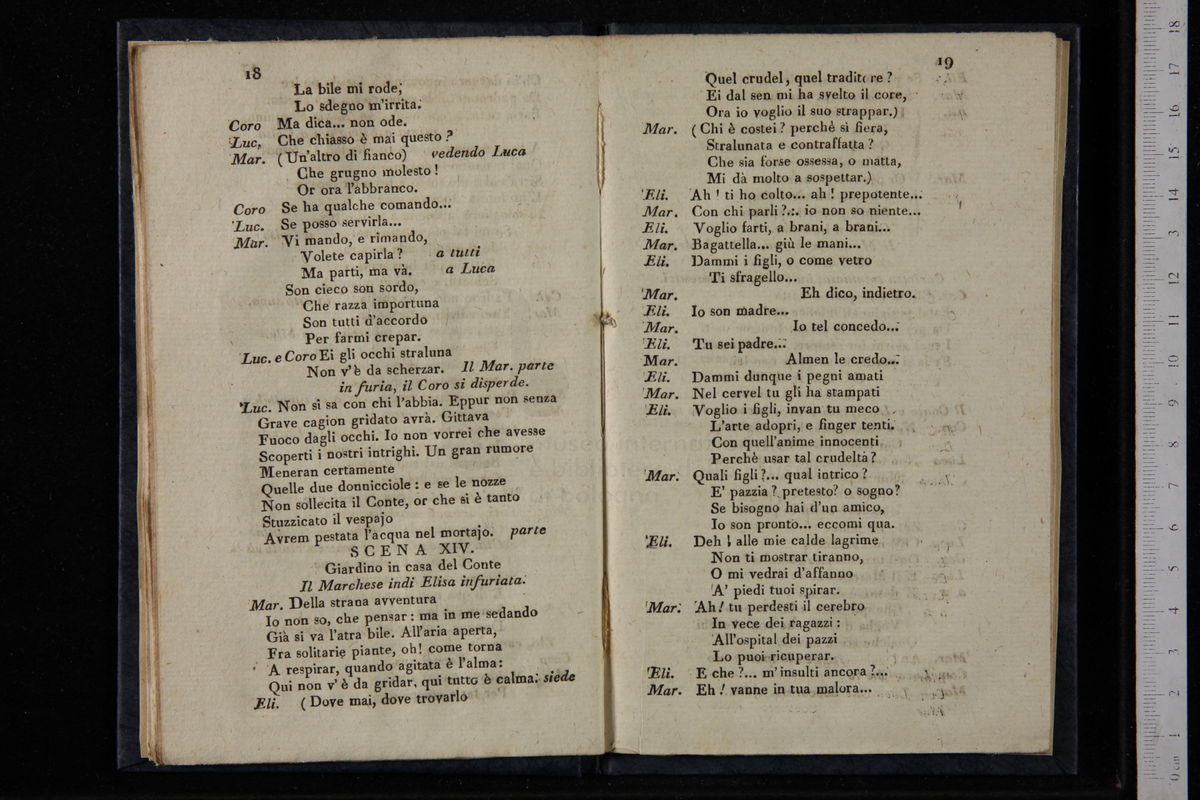 18
La bile mi rode;
Lo sdegno m'irrita.
Coro Ma dica... non ode.
Luc. Che chiasso è mai questo?
Mar. (Un'altro di fianco) vedendo Luca
Che grugno molesto!
Or ora l'abbranco.
Coro Se ha qualche comando...
Luc. Se posso servirla...
Mar. Vi mando, e rimando,
Volete capirla? a tutti
Ma parti, ma và. a Luca
Son cieco son sordo,
Che razza importuna
Son tutti d'accordo
Per farmi crepar.
Luc. e Coro Ei gli occhi straluna
Non v'è da scherzar. Il Mar. parte
in furia, il Coro si disperde.
Luc. Non si sa con chi l'abbia. Eppur non senza
Grave cagion gridato avrà. Gittava
Fuoco dagli occhi. Io non vorrei che avesse
Scoperti i nostri intrighi. Un gran rumore
Meneran certamente
Quelle due donnicciole: e se le nozze
Non sollecita il Conte, or che si è tanto
Stuzzicato il vespajo
Avrem pestata l'acqua nel mortajo. parte
SCENA XIV.
Giardino in casa del Conte
Il Marchese indi Elisa infuriata.
Mar. Della strana avventura
Io non so, che pensar: ma in me sedando
Già si va l'atra bile. All'aria aperta,
Fra solitarie piante, oh! come torna
A respirar, quando agitata è l'alma:
Qui non v'è da gridar, qui tutto è calma. siede
Eli. (Dove mai, dove trovarlo
19
Quel crudel, quel traditore?
Ei dal sen mi ha svelto il core,
Ora io voglio il suo strappar.)
Mar. (Chi è costei? perchè sì fiera,
Stralunata e contraffatta?
Che sia forse ossessa, o matta,
Mi dà molto a sospettar.)
Eli. Ah! ti ho colto... ah! prepotente...
Mar. Con chi parli?... io non so niente...
Eli. Voglio farti, a brani, a brani...
Mar. Bagattella... giù le mani...
Eli. Dammi i figli, o come vetro
Ti sfragello...
Mar. Eh dico, indietro.
Eli. Io son madre...
Mar. Io tel concedo...
Eli. Tu sei padre...
Mar. Almen le credo...
Eli. Dammi dunque i pegni amati
Mar. Nel cervel tu gli ha stampati
Eli. Voglio i figli, invan tu meco
L'arte adopri, e finger tenti.
Con quell'anime innocenti
Perchè usar tal crudeltà?
Mar. Quali figli?... qual intrico?
E' pazzia? pretesto? o sogno?
Se bisogno hai d'un amico,
Io son pronto... eccomi qua.
Eli. Deh! alle mie calde lagrime
Non ti mostrar tiranno,
O mi vedrai d'affanno
A' piedi tuoi spirar.
Mar. Ah! tu perdesti il cerebro
In vece dei ragazzi:
All'ospital dei pazzi
Lo puoi ricuperar.
Eli. E che?... m'insulti ancora?...
Mar. Eh! vanne in tua malora...